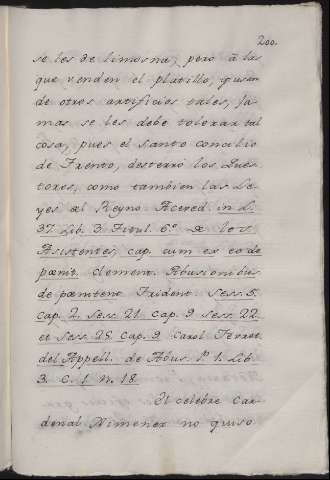 200.
se les de limosna, pero à las
que venden el platillo, y usan
de otros artificios tales, ja
mas se les debe tolerar tal
cosa, pues el santo concilio
de Trento, desterró los Ques
tores, como tambien las Le
yes del Reyno. Acered. in L.
37. Lib. 3. Titul. 6.º de los
Asistentes, cap. cum ex eo de
pœnit. clement. Abusionibus
de pœniten. Trident. Sess. 5.
cap. 2. Sess. 21. Cap. 9. sess. 22.
et Sess. 25. Cap. 9. Carol. Ferret.
del Appell. de Abus. P. 1. Lib.
3. C. 1. n. 18.
El celebre Car
denal Ximenez no quiso